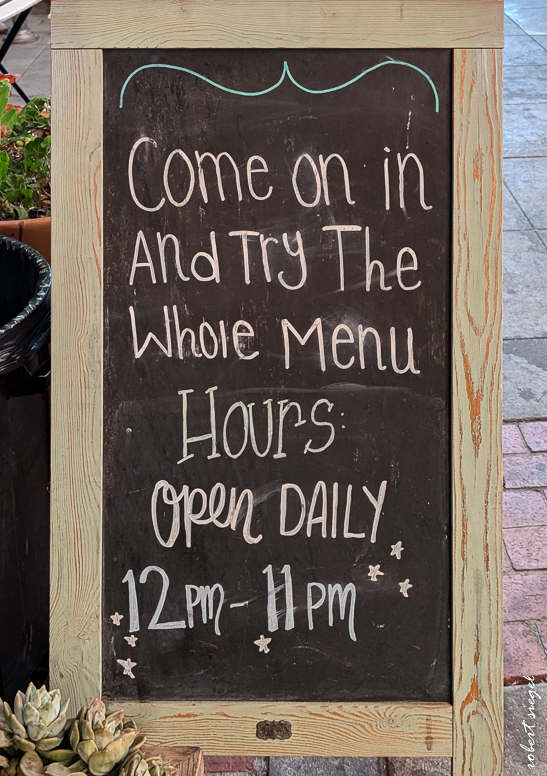 Come on in
And Try The
Whole Menu
Hours:
open DAILY
12pm - 11pm
robert siegel